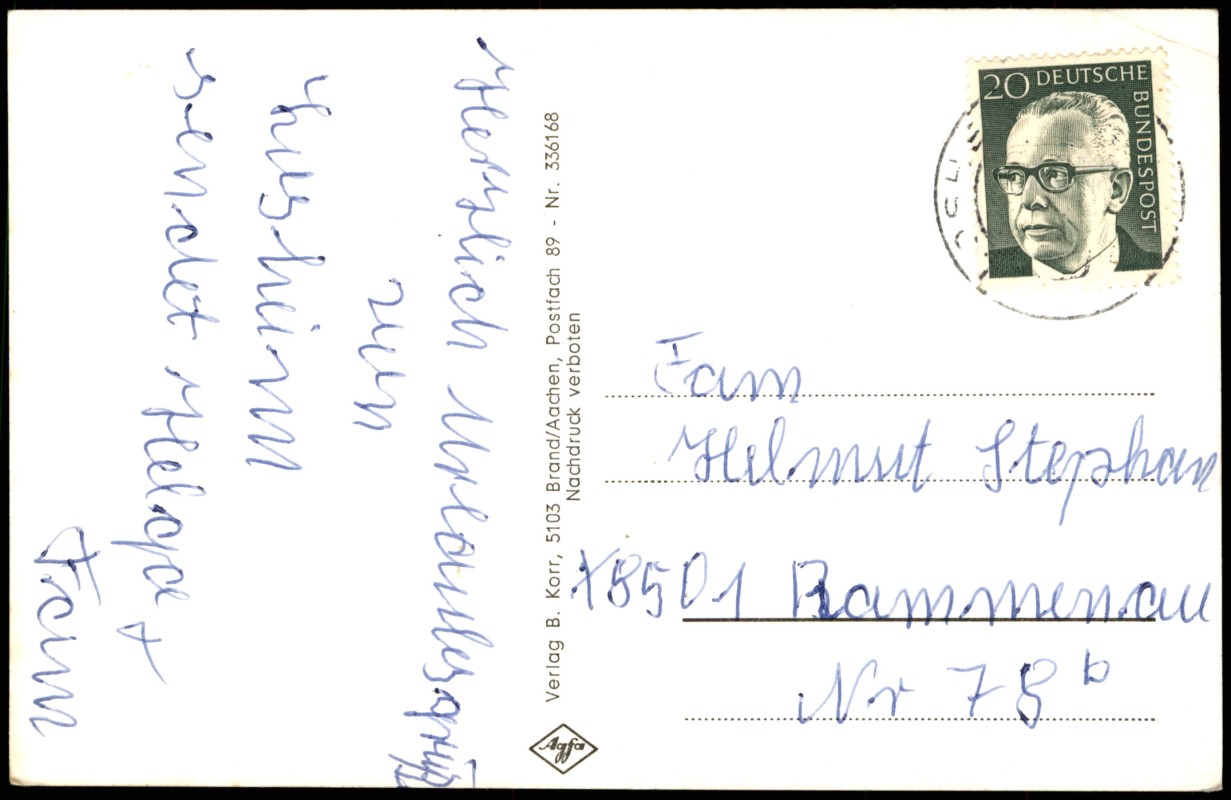 Herzlich Urlaubsgrüß
aus
sendet Helga +
Fam
Verlag B. Korr, 5103 Brand/Aachen, Postfach 89 - Nr. 336168
Nachdruck verboten
Agfa
20 DEUTSCHE
BUNDESPOST
Fam
Helmut Stephan
X8501 Rammenau
Nr 78 b